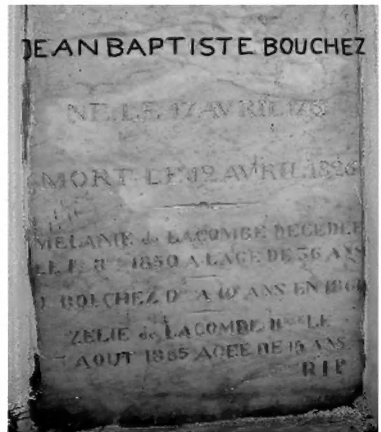 JEAN BAPTISTE BOUCHEZ
NE LE 17 AVRIL
MORT LE AVRIL
MELANIE de LACOMBE DECEDEE
LE 1850 A L'AGE DE 36 ANS
BOUCHEZ A ANS EN
ZELIE de LACOMBE LE
AOUT 1855 AGEE DE 15 ANS
RIP